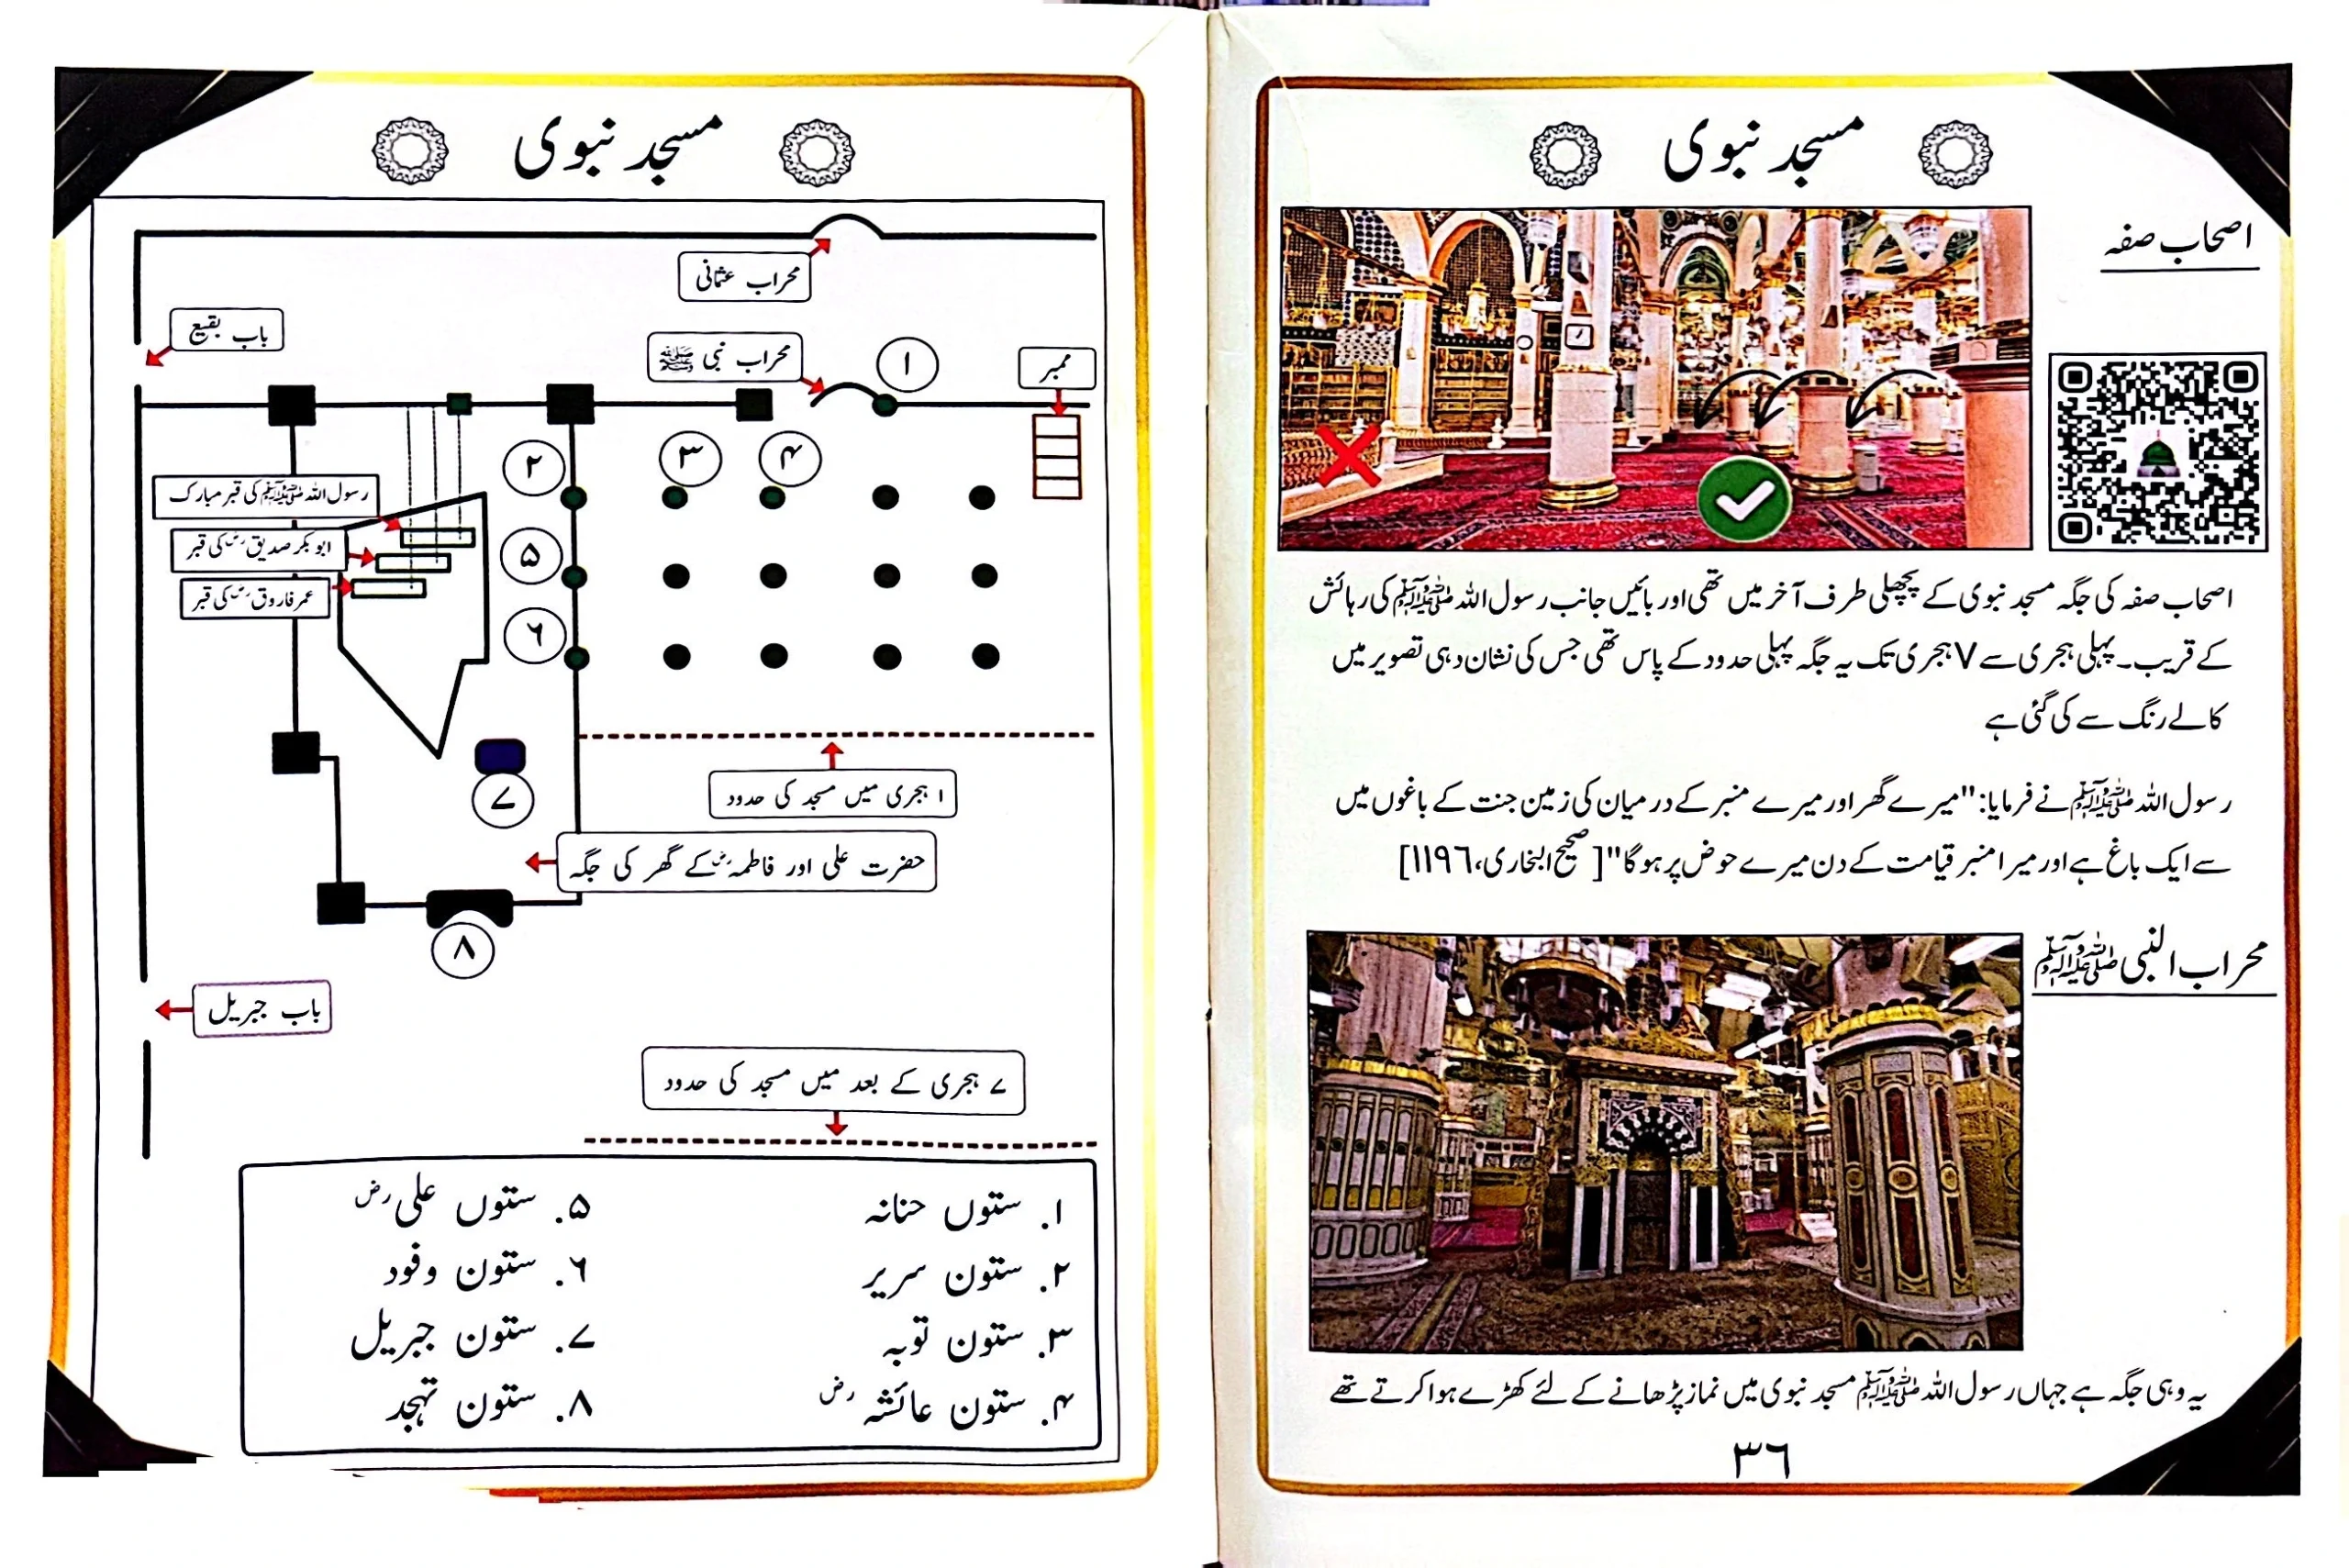 مسجد نبوی
اصحاب صفہ
اصحاب صفہ کی جگہ مسجد نبوی کے پچھلی طرف آخر میں تھی اور بائیں جانب رسول اللہ ﷺ کی رہائش
کے قریب۔ پہلی ہجری سے ۷ ہجری تک یہ جگہ پہلی حدود کے پاس تھی جس کی نشان دہی تصویر میں
کالے رنگ سے کی گئی ہے
رسول اللہ ﷺ نے فرمایا: "میرے گھر اور میرے منبر کے درمیان کی زمین جنت کے باغوں میں
سے ایک باغ ہے اور میرا منبر قیامت کے دن میرے حوض پر ہو گا" [صحیح البخاری، ۱۱۹٦]
محراب النبی ﷺ
یہ وہی جگہ ہے جہاں رسول اللہ ﷺ مسجد نبوی میں نماز پڑھانے کے لئے کھڑے ہوا کرتے تھے
۳٦
مسجد نبوی
محراب عثمانی
باب بقیع
محراب نبی ﷺ
۱
ممبر
۲
۳
۴
رسول اللہ ﷺ کی قبر مبارک
ابو بکر صدیق رض کی قبر
۵
عمر فاروق رض کی قبر
٦
۱ ہجری میں مسجد کی حدود
۷
حضرت علی اور فاطمہ رض کے گھر کی جگہ
۸
باب جبریل
۷ ہجری کے بعد میں مسجد کی حدود
۱. ستوں حنانہ
۲. ستون سریر
۳. ستون توبہ
۴. ستون عائشہ رض
۵. ستوں علی رض
٦. ستون وفود
۷. ستون جبریل
۸. ستون تہجد